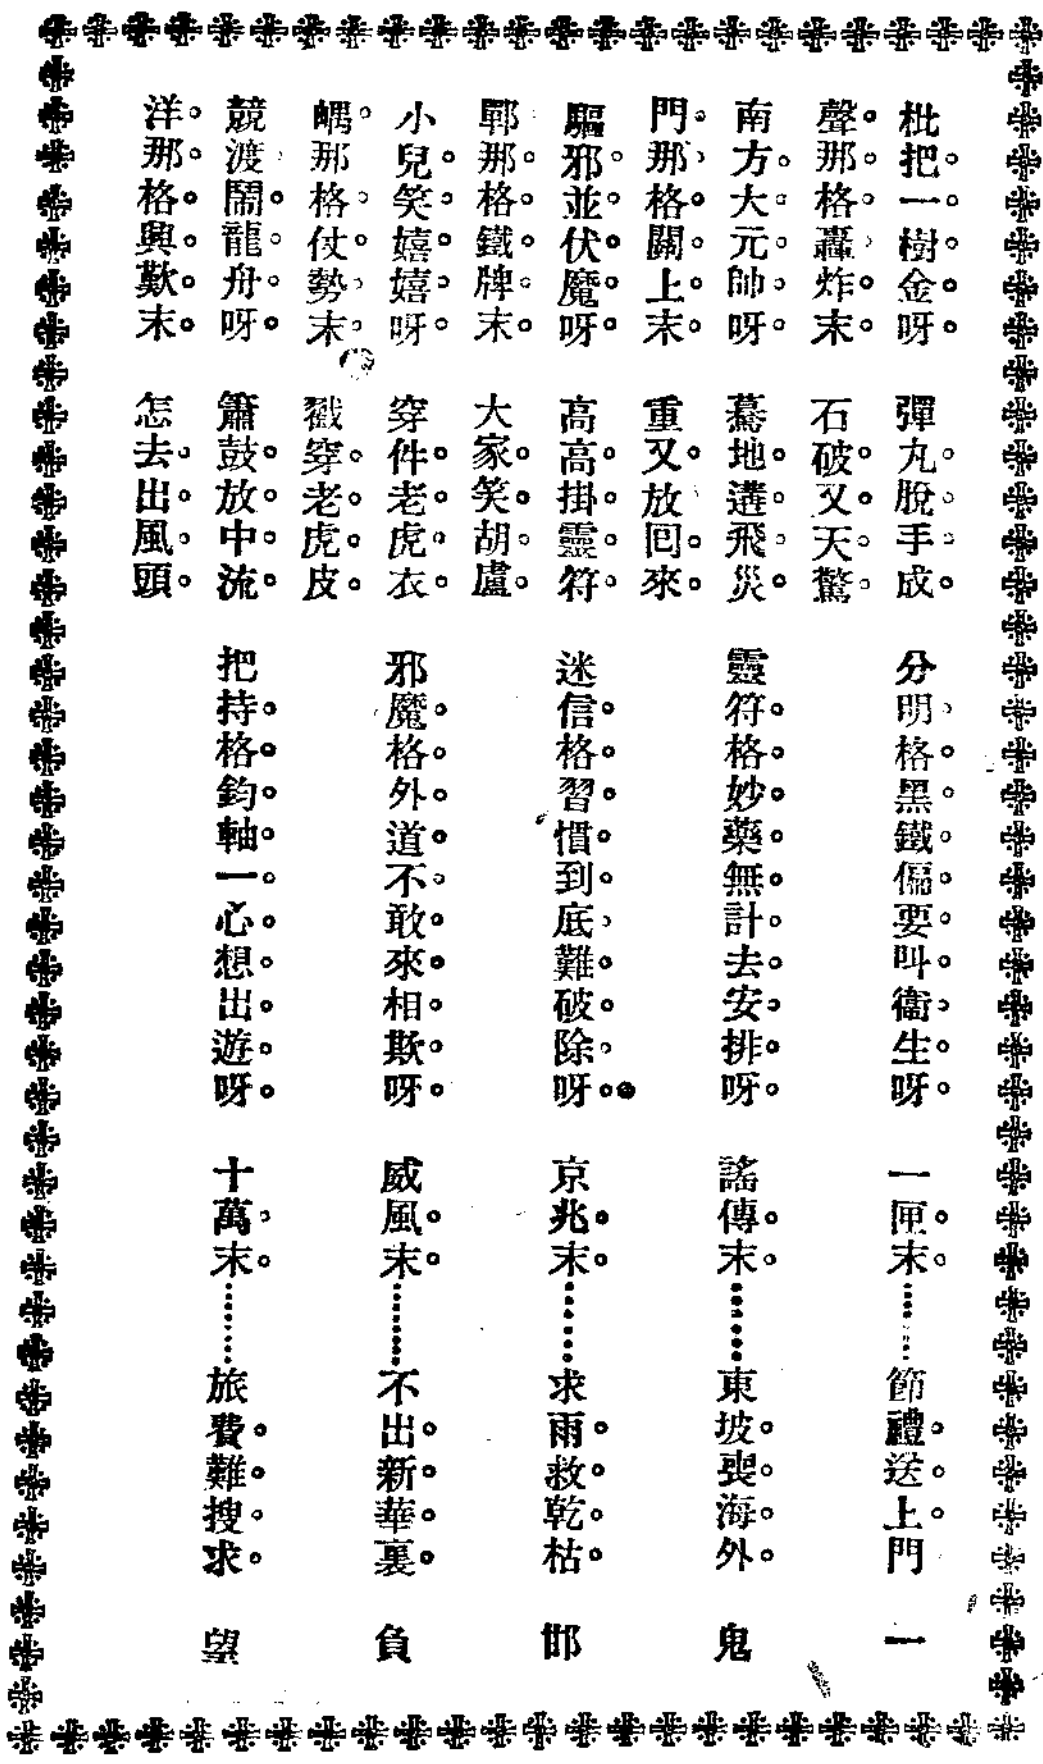 枇把一樹金呀　彈丸脫手成　分明格黑鐵偏要叫衞生呀　一匣末⋯⋯節禮送上門　一
聲那格轟炸末　石破又天驚
南方大元帥呀　驀地遘飛災　靈符格妙藥無計去安排呀　謠傳末⋯⋯東坡喪海外　鬼
門那格關上末　重又放囘來
驅邪並伏魔呀　高高掛靈符　迷信格習慣到底難破除呀　京兆末⋯⋯求雨救乾枯　邯
鄲那格鐵牌末　大家笑胡盧
小兒笑嬉嬉呀　穿件老虎衣　邪魔格外道不敢來相欺呀　威風末⋯⋯不出新華裏　負
嵎那格仗勢末　戳穿老虎皮
競渡鬧龍舟呀　簫鼓放中流　把持格鈞軸一心想出遊呀　十萬末⋯⋯旅費難搜求　望
洋那格興歎末　怎去出風頭